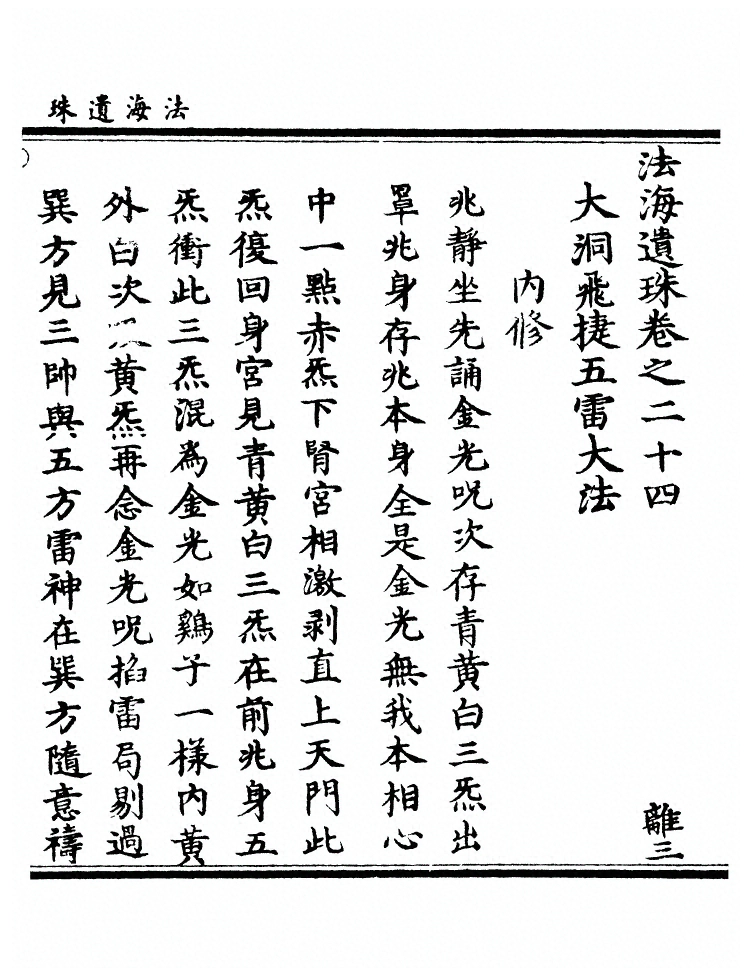 法海遺珠
法海遺珠卷之二十四　離三
大洞飛捷五雷大法
內修
兆靜坐先誦金光呪次存青黃白三炁出
罩兆身存兆本身全是金光無我本相心
中一點赤炁下腎宮相激剥直上天門此
炁復回身宮見青黃白三炁在前兆身五
炁衝此三炁混為金光如鷄子一樣內黃
外白次黃炁再念金光呪掐雷局剔過
巽方見三帥與五方雷神在巽方隨意禱